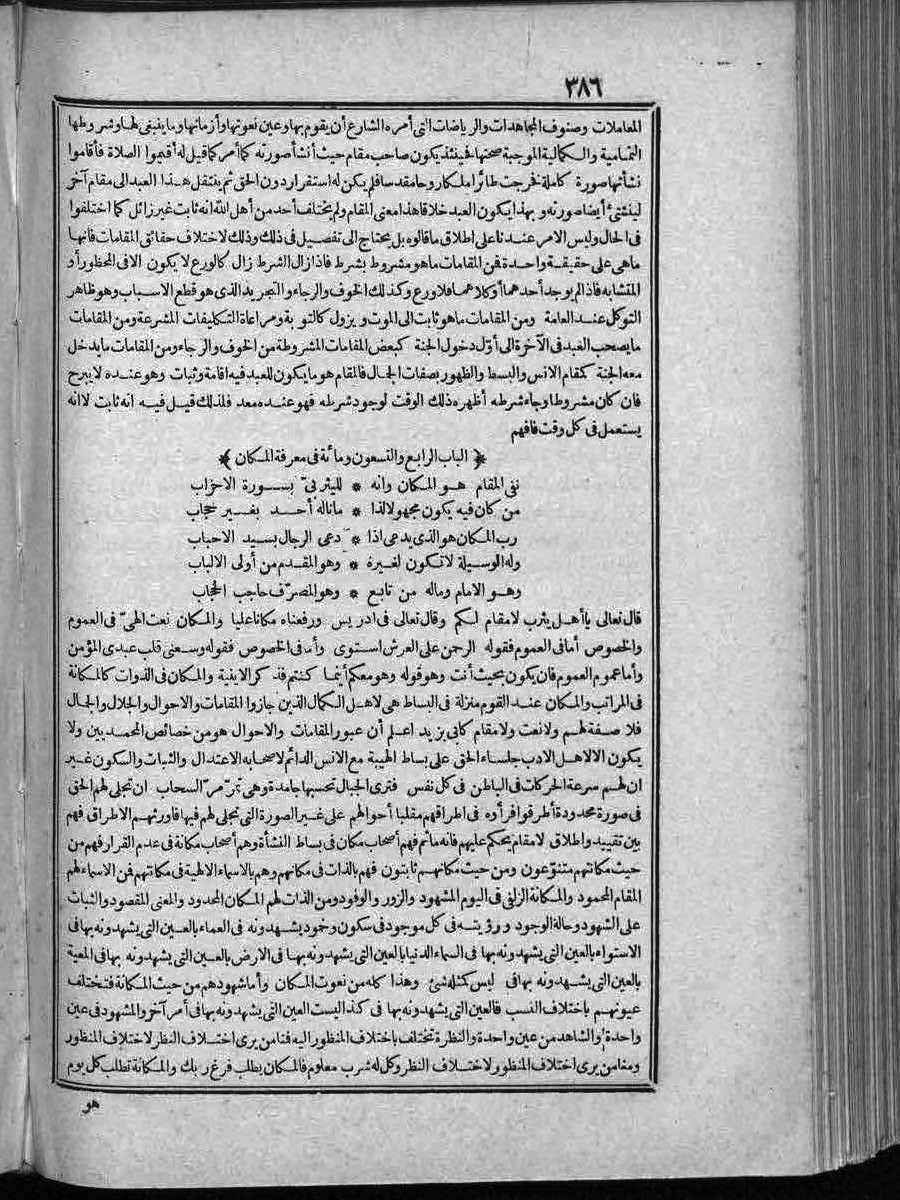 ٣٨٦
المعاملات وصنوف المجاهدات والرياضات التى أمره الشارع أن يقوم بها وعين نعوتها وأزمانها وما ينبغى لها وشروطها
التمامية والكمالية الموجبة صحتها فحينئذ يكون صاحب مقام حيث أنشأ صورته كما أمر كما قيل له أقيموا الصلاة فأقاموا
نشأتها صورة كاملة فخرجت طائرا ملكا روحا مقدسا فلم يكن له استقرار دون الحق ثم ينتقل هذا العبد الى مقام آخر
لينشئ أيضا صورته وبهذا يكون العبد خلاقا هذا معنى المقام ولم يختلف أحد من أهل الله انه ثابت غير زائل كما اختلفوا
فى الحال وليس الامر عندنا على اطلاق ما قالوه بل يحتاج الى تفصيل فى ذلك وذلك لاختلاف حقائق المقامات فانها
ما هى على حقيقة واحدة فمن المقامات ما هو مشروط بشرط فاذا زال الشرط زال كالورع لا يكون الا فى المحظور أو
المتشابه فاذا لم يوجد أحدهما أو كلاهما فلا ورع وكذلك الخوف والرجاء والتجريد الذى هو قطع الاسباب وهو ظاهر
التوكل عند العامة ومن المقامات ما هو ثابت الى الموت ويزول كالتوبة ومراعاة التكليفات المشرعة ومن المقامات
ما يصحب العبد فى الآخرة الى أوّل دخول الجنة كبعض المقامات المشروطة من الخوف والرجاء ومن المقامات ما يدخل
معه الجنة كمقام الانس والبسط والظهور بصفات الجمال فالمقام هو ما يكون للعبد فيه اقامة وثبات وهو عنده لا يبرح
فان كان مشروطا وجاء شرطه أظهره ذلك الوقت لوجود شرطه فهو عنده معد فلذلك قيل فيه انه ثابت لا انه
يستعمل فى كل وقت فافهم
﴿ الباب الرابع والتسعون ومائة فى معرفة المكان ﴾
نفى المقام هو المكان وانه * لليثربىّ بسورة الاحزاب
من كان فيه يكون مجهولا لذا * ما ناله أحد بغير حجاب
رب المكان هو الذى يدعى اذا * دعى الرجال بسيد الاحباب
وله الوسيلة لا تكون لغيره * وهو المقدم من أولى الالباب
وهو الامام وماله من تابع * وهو المصرّف حاجب الحجاب
قال تعالى يا أهل يثرب لا مقام لكم وقال تعالى فى ادريس ورفعناه مكانا عليا والمكان نعت الهىّ فى العموم
والخصوص أما فى العموم فقوله الرحمن على العرش استوى وأما فى الخصوص فقوله وسعنى قلب عبدى المؤمن
وأما عموم العموم فان يكون بحيث أنت وهو قوله وهو معكم أينما كنتم فذكر الاينية والمكان فى الذوات كالمكانة
فى المراتب والمكان عند القوم منزلة فى البساط هى لاهل الكمال الذين جازوا المقامات والاحوال والجلال والجمال
فلا صفة لهم ولا نعت ولا مقام كابى يزيد اعلم أن عبور المقامات والاحوال هو من خصائص المحمديين ولا
يكون الا لاهل الادب جلساء الحق على بساط الهيبة مع الانس الدائم لاصحابه الاعتدال والثبات والسكون غير
ان لهم سرعة الحركات فى الباطن فى كل نفس فترى الجبال تحسبها جامدة وهى تمرّ مرّ السحاب ان تجلى لهم الحق
فى صورة محدودة أطرقوا فرأوه فى اطراقهم مقلبا أحوالهم على غير الصورة التى تجلى لهم فيها فاورثهم الاطراق فهم
بين تقييد واطلاق لا مقام يحكم عليهم فانه ما ثم فهم أصحاب مكان فى بساط النشأة وهم أصحاب مكانة فى عدم القرار فهم من
حيث مكانتهم متنوّعون ومن حيث مكانهم ثابتون فهم بالذات فى مكانهم وهم بالاسماء الالهية فى مكانتهم فمن الاسماء لهم
المقام المحمود والمكانة الزلفى فى اليوم المشهود والزور والوفود ومن الذات لهم المكان المحدود والمعنى المقصود والثبات
على الشهود وحالة الوجود ورؤيته فى كل موجود فى سكون وخمود يشهدونه فى العماء بالعين التى يشهدونه بها فى
الاستواء بالعين التى يشهدونه بها فى السماء الدنيا بالعين التى يشهدونه بها فى الارض بالعين التى يشهدونه بها فى المعية
بالعين التى يشهدونه بها فى ليس كمثله شئ وهذا كله من نعوت المكان وأما شهودهم من حيث المكانة فتختلف
عيونهم باختلاف النسب فالعين التى يشهدونه بها فى كذا ليست العين التى يشهدونه بها فى أمر آخر والمشهود فى عين
واحدة والشاهد من عين واحدة والنظرة تختلف باختلاف المنظور اليه فمنا من يرى اختلاف النظر لاختلاف المنظور
ومنا من يرى اختلاف المنظور لاختلاف النظر وكل له شرب معلوم فالمكان يطلب فرغ ربك والمكانة تطلب كل يوم
هو